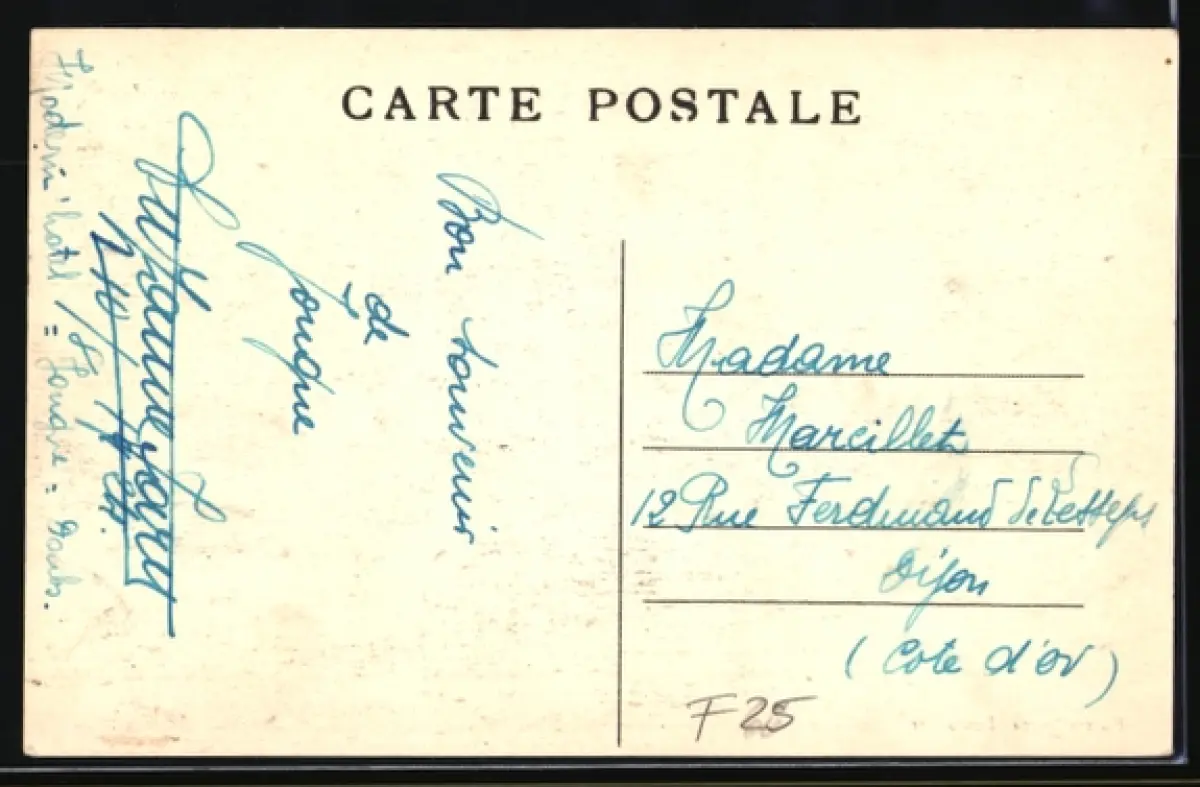 CARTE POSTALE
Bon souvenir
de
Jougne
Modern' hotel
= Jougne = Doubs.
Madame
Marcillet
12 Rue Ferdinand de Lesseps
Dijon
(Cote d'or)
F25